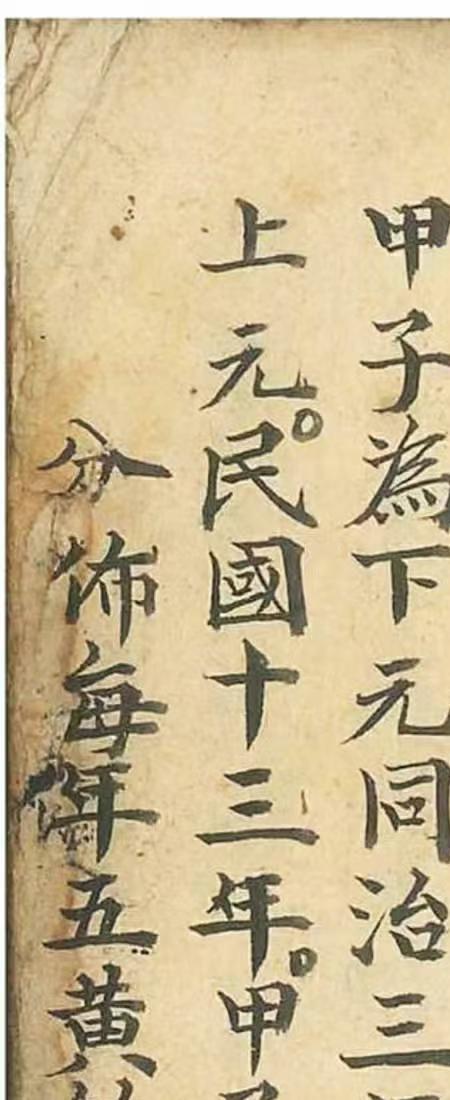 甲子為下元同治三
上元。民國十三年。甲
分佈每年五黃